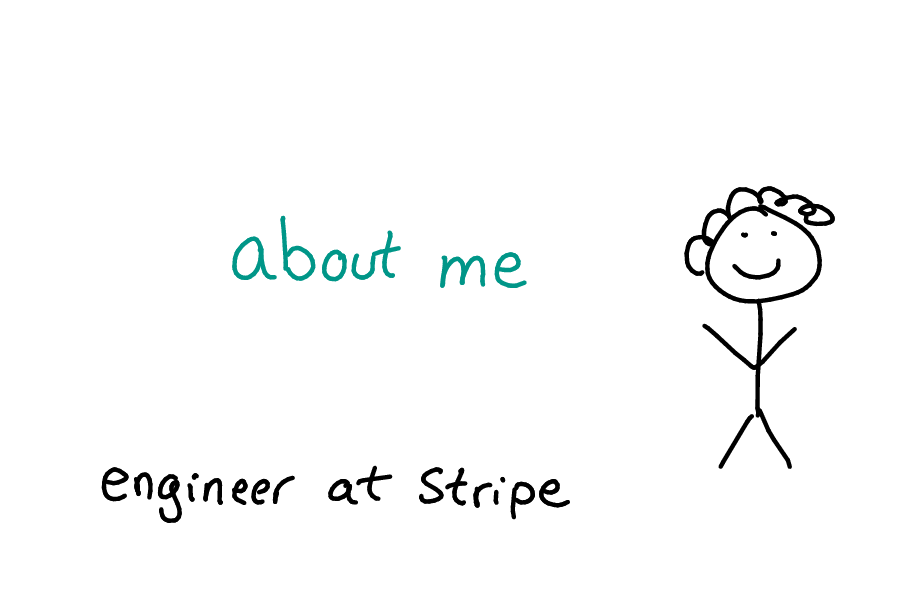 about me
engineer at Stripe